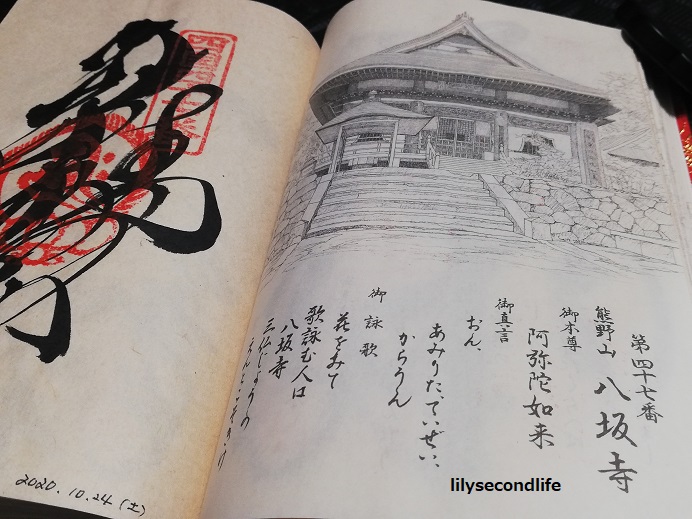 第四十七番
熊野山 八坂寺
御本尊
阿弥陀如来
御真言
おん、
あみりた、ていぜい、
からうん
御詠歌
花をみて
歌詠む人は
八坂寺
三仏じょうの
えんとこそきけ
2020.10.24(土)
lilysecondlife